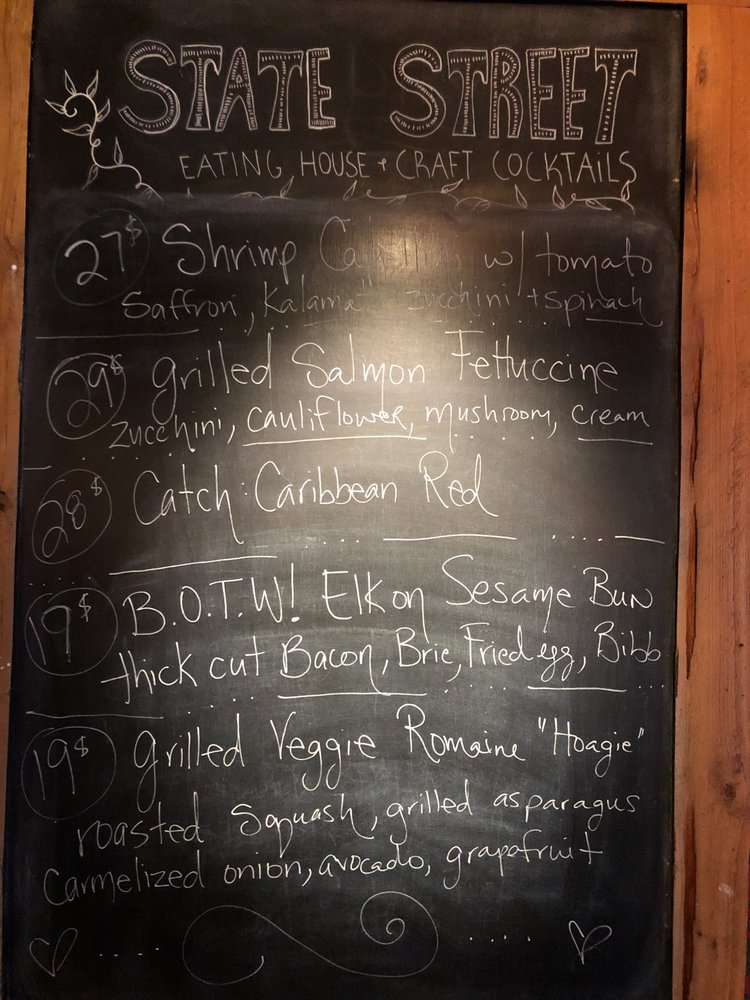 STATE STREET
EATING HOUSE + CRAFT COCKTAILS
27$ Shrimp w/ tomato
Saffron, Kalamata zucchini + spinach
29$ grilled Salmon Fettuccine
zucchini, cauliflower, mushroom, cream
28$ Catch: Caribbean Red
19$ B.O.T.W! Elk on Sesame Bun
thick cut Bacon, Brie, Fried egg, Bibb
19$ grilled Veggie Romaine "Hoagie"
roasted Squash, grilled asparagus
Carmelized onion, avocado, grapefruit